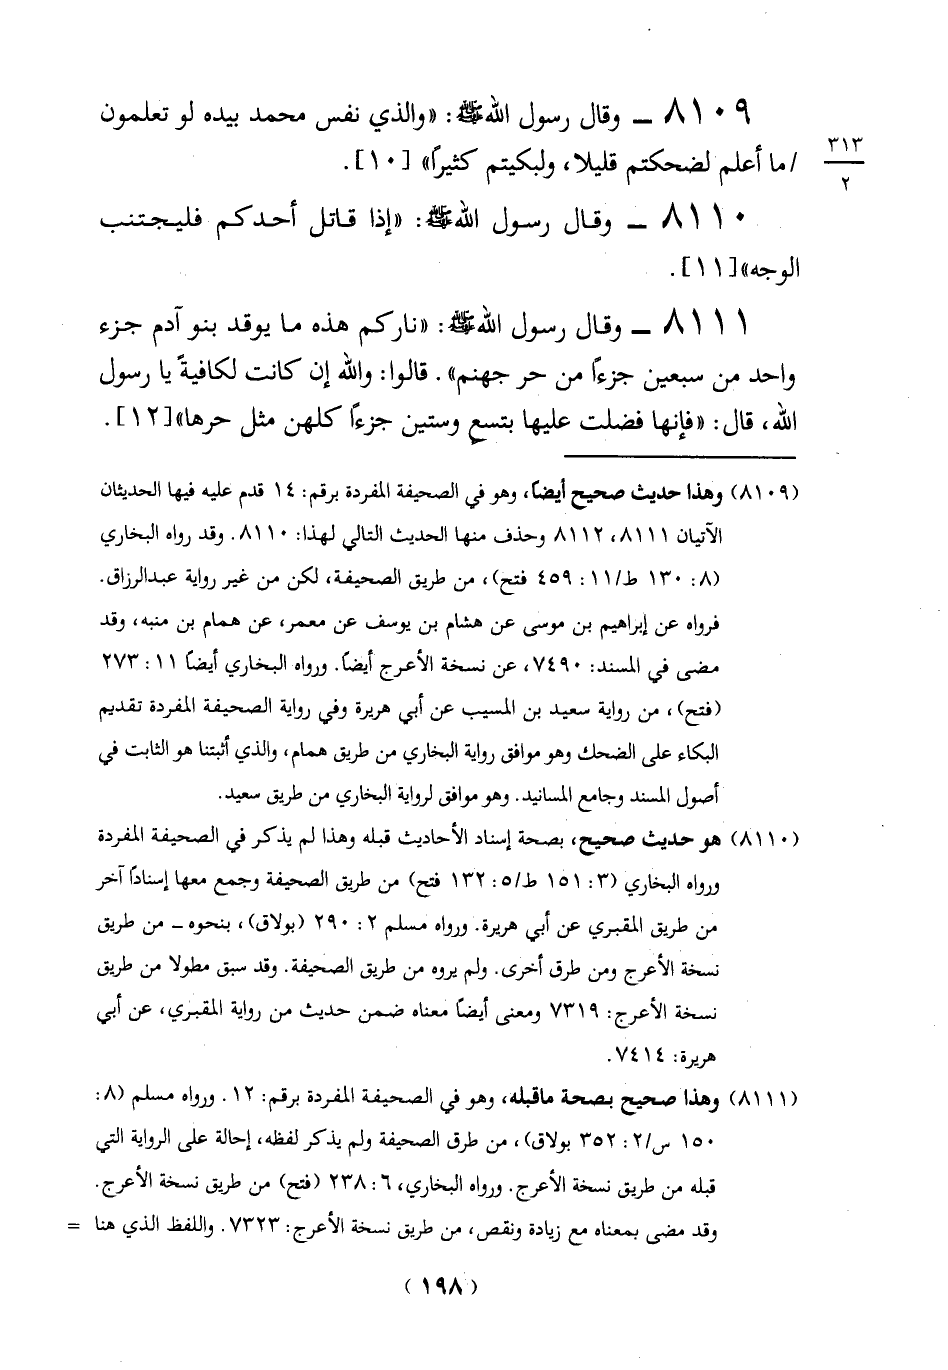 ٨١٠٩ ــ وقال رسول الله ﷺ: «والذي نفس محمد بيده لو تعلمون
/ ما أعلم لضحكتم قليلا، ولبكيتم كثيراً» [١٠].
٣١٣
٢
٨١١٠ ــ وقال رسول الله ﷺ: «إذا قاتل أحدكم فليجتنب
الوجه»[١١].
٨١١١ ــ وقال رسول الله ﷺ: «ناركم هذه ما يوقد بنو آدم جزء
واحد من سبعين جزءاً من حر جهنم». قالوا: والله إن كانت لكافيةً يا رسول
الله، قال: «فإنها فضلت عليها بتسع وستين جزءاً كلهن مثل حرها»[١٢].
(٨١٠٩) وهذا حديث صحيح أيضاً، وهو في الصحيفة المفردة برقم: ١٤ قدم عليه فيها الحديثان
الآتيان ٨١١١، ٨١١٢ وحذف منها الحديث التالي لهذا: ٨١١٠. وقد رواه البخاري
(٨: ١٣٠ ط/١١: ٤٥٩ فتح)، من طريق الصحيفة، لكن من غير رواية عبدالرزاق.
فرواه عن إبراهيم بن موسى عن هشام بن يوسف عن معمر، عن همام بن منبه، وقد
مضى في المسند: ٧٤٩٠، عن نسخة الأعرج أيضاً. ورواه البخاري أيضاً ١١: ٢٧٣
(فتح)، من رواية سعيد بن المسيب عن أبي هريرة وفي رواية الصحيفة المفردة تقديم
البكاء على الضحك وهو موافق رواية البخاري من طريق همام، والذي أثبتنا هو الثابت في
أصول المسند وجامع المسانيد. وهو موافق لرواية البخاري من طريق سعيد.
(٨١١٠) هو حديث صحيح، بصحة إسناد الأحاديث قبله وهذا لم يذكر في الصحيفة المفردة
ورواه البخاري (٣: ١٥١ ط/٥: ١٣٢ فتح) من طريق الصحيفة وجمع معها إسناداً آخر
من طريق المقبري عن أبي هريرة. ورواه مسلم ٢: ٢٩٠ (بولاق)، بنحوه ــ من طريق
نسخة الأعرج ومن طرق أخرى. ولم يروه من طريق الصحيفة. وقد سبق مطولا من طريق
نسخة الأعرج: ٧٣١٩ ومعنى أيضاً معناه ضمن حديث من رواية المقبري، عن أبي
هريرة: ٧٤١٤.
(٨١١١) وهذا صحيح بصحة ماقبله، وهو في الصحيفة المفردة برقم: ١٢. ورواه مسلم (٨:
١٥٠ س/٢: ٣٥٢ بولاق)، من طرق الصحيفة ولم يذكر لفظه، إحالة على الرواية التي
قبله من طريق نسخة الأعرج. ورواه البخاري، ٦: ٢٣٨ (فتح) من طريق نسخة الأعرج.
وقد مضى بمعناه مع زيادة ونقص، من طريق نسخة الأعرج: ٧٣٢٣. واللفظ الذي هنا =
(١٩٨)